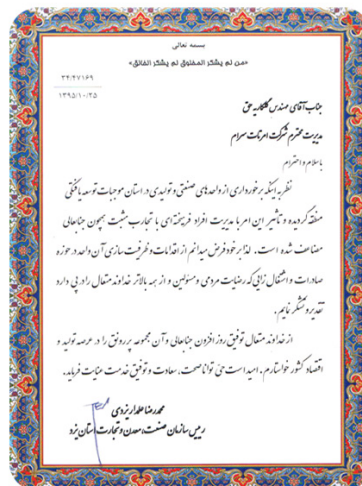 بسمه تعالی
«من لم یشکر المخلوق لم یشکر الخالق»
۳۴/۴۷۱۶۹
۱۳۹۵/۱۰/۲۵
جناب آقای مهندس گلکاریه حق
مدیریت محترم شرکت امرتات سرام
با سلام و احترام
نظر به اینکه برخورداری از واحدهای صنعتی و تولیدی در استان موجبات توسعه یافتگی
منطقه گردیده و تاثیر این امر با مدیریت افراد فرهیخته ای با تجارب مثبت همچون جنابعالی
مضاعف شده است. لذا بر خود فرض میدانم از اقدامات و ظرفیت سازی آن واحد در حوزه
صادرات و اشتغال زائی که رضایت مردمی و مسئولین و از همه بالاتر خداوند متعال را در پی دارد
تقدیر و تشکر نمایم.
از خداوند متعال توفیق روز افزون جنابعالی و آن مجموعه پر رونق را در عرصه تولید و
اقتصاد کشور خواستارم. امید است حی توانا صحت، سعادت و توفیق خدمت عنایت فرماید.
محمدرضا علمدار یزدی
رییس سازمان صنعت، معدن و تجارت استان یزد